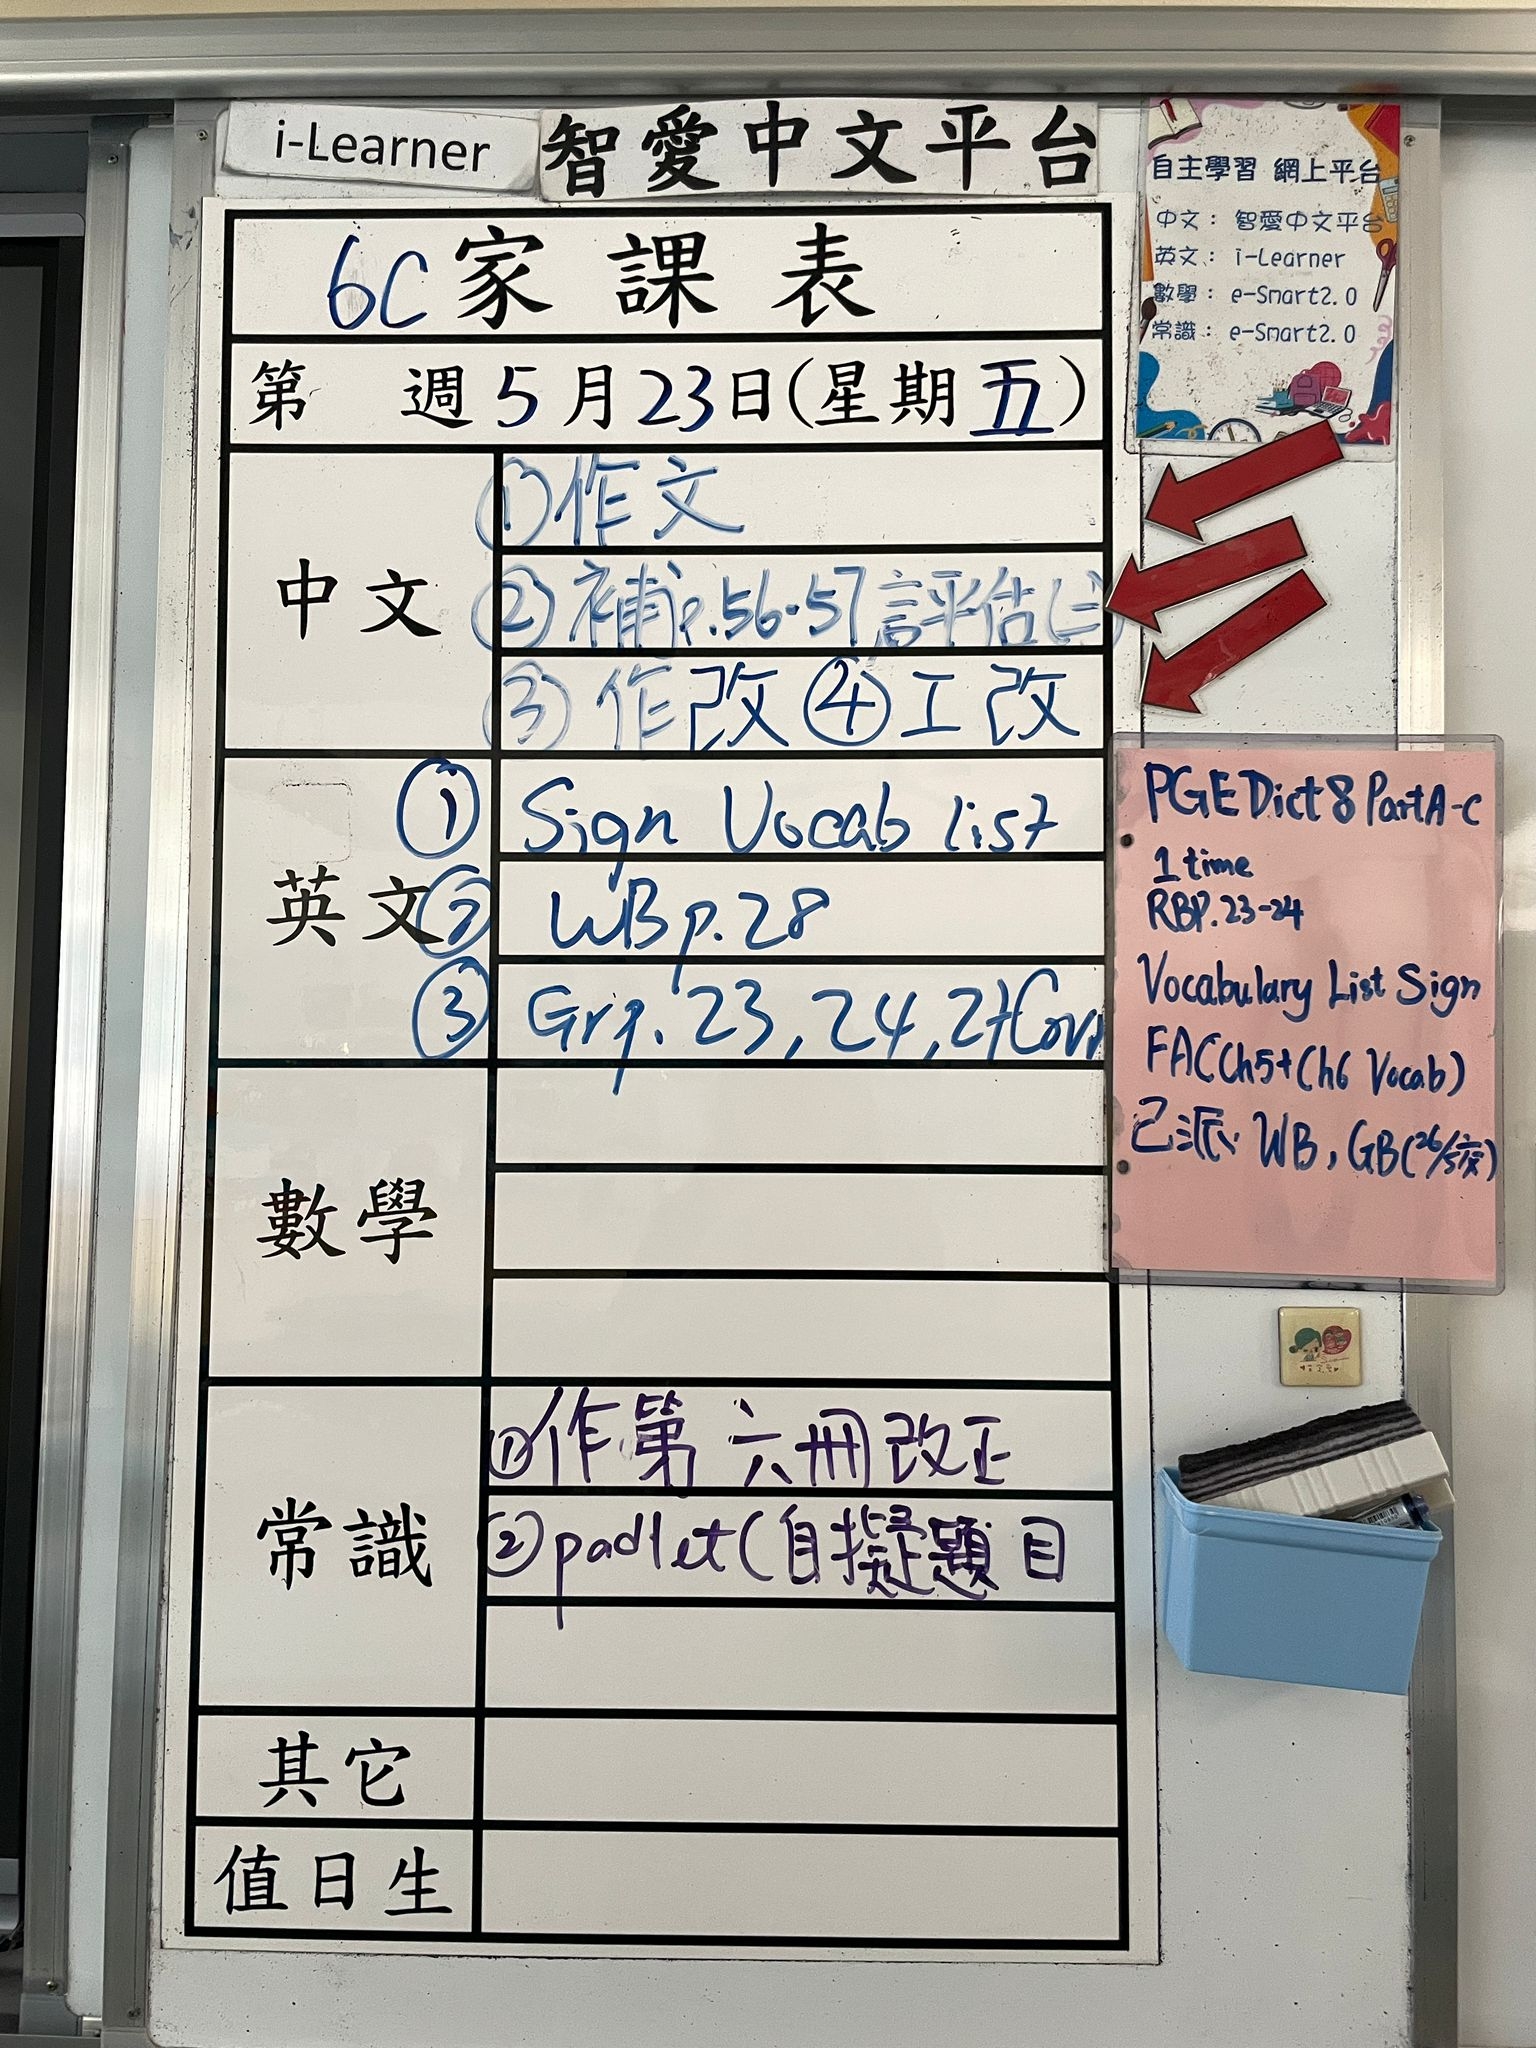 i-Learner 智愛中文平台
自主學習 網上平台
中文： 智愛中文平台
英文： i-Learner
數學： e-Smart2.0
常識： e-Smart2.0
6C 家課表
第 週 5月23日(星期五)
中文
①作文
②補p.56-57評估(二)
③作改④工改
英文
① Sign Vocab list
② WB p.28
③ Grp. 23, 24, 27 Corr
PGE Dict 8 Part A-C
1 time
RBP. 23-24
Vocabulary List Sign
FAC Ch5+Ch6 Vocab)
已派: WB, GB(26/5
數學
常識
①作第六冊改正
②padlet(自擬題目
其它
值日生